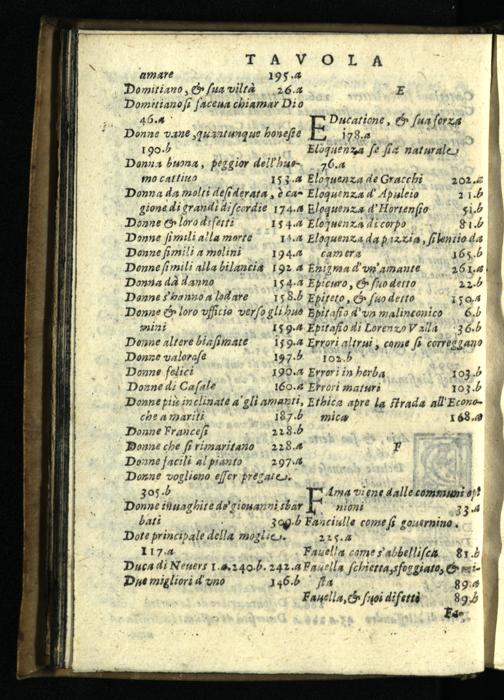 TAVOLA
amare 195.a
Domitiano, & sua viltà 26.a
Domitiano si faceua chiamar Dio
46.a
Donne vane, quantunque honeste
190.b
Donna buona, peggior dell'huo-
mo cattiuo 153.a
Donna da molti desiderata, è ca-
gione di grandi discordie 174.a
Donne & loro difetti 154.a
Donne simili alla morte
Donne simili a molini 194.a
Donne simili alla bilancia 192.a
Donna dà danno 154.a
Donne s'hanno a lodare 158.b
Donne & loro vfficio verso gli huo
mini 159.a
Donne altere biasimate 159.a
Donne valorose 197.b
Donne felici 190.a
Donne di Casale 160.a
Donne più inclinate a gli amanti,
che a mariti 187.b
Donne Francesi 228.b
Donne che si rimaritano 228.a
Donne facili al pianto 297.a
Donne vogliono esser pregate.
305.b
Donne inuaghite de' giouanni sbar
bati 309.b
Dote principale della moglie.
117.a
Duca di Neuers 1.a. 240.b. 242.a
Due migliori d'vno 146.b
E
EDucatione, & sua forza
178.a
Eloquenza se sia naturale
76.a
Eloquenza de Gracchi 202.a
Eloquenza d'Apuleio 21.b
Eloquenza d'Hortensio 51.b
Eloquenza di corpo 81.b
Eloquenza da piazzia, silentio da
camera 165.b
Enigma d'vn'amante 261.a.
Epicuro, & suo detto 22.b
Epiteto, & suo detto 150.a
Epitafio d'vn malinconico 6.b
Epitafio di Lorenzo Valla 36.b
Errori altrui, come si correggano
102.b
Errori in herba 103.b
Errori maturi 103.b
Ethica apre la strada all'Econo-
mica 168.a
F
FAma viene dalle communi opi
nioni 33.a
Fanciulle come si gouernino.
225.a
Fauella come s'abbellisca 81.b
Fauella schietta, sfoggiato, &
sta 89.a
Fauella, & suoi difetti 89.b
Fa-